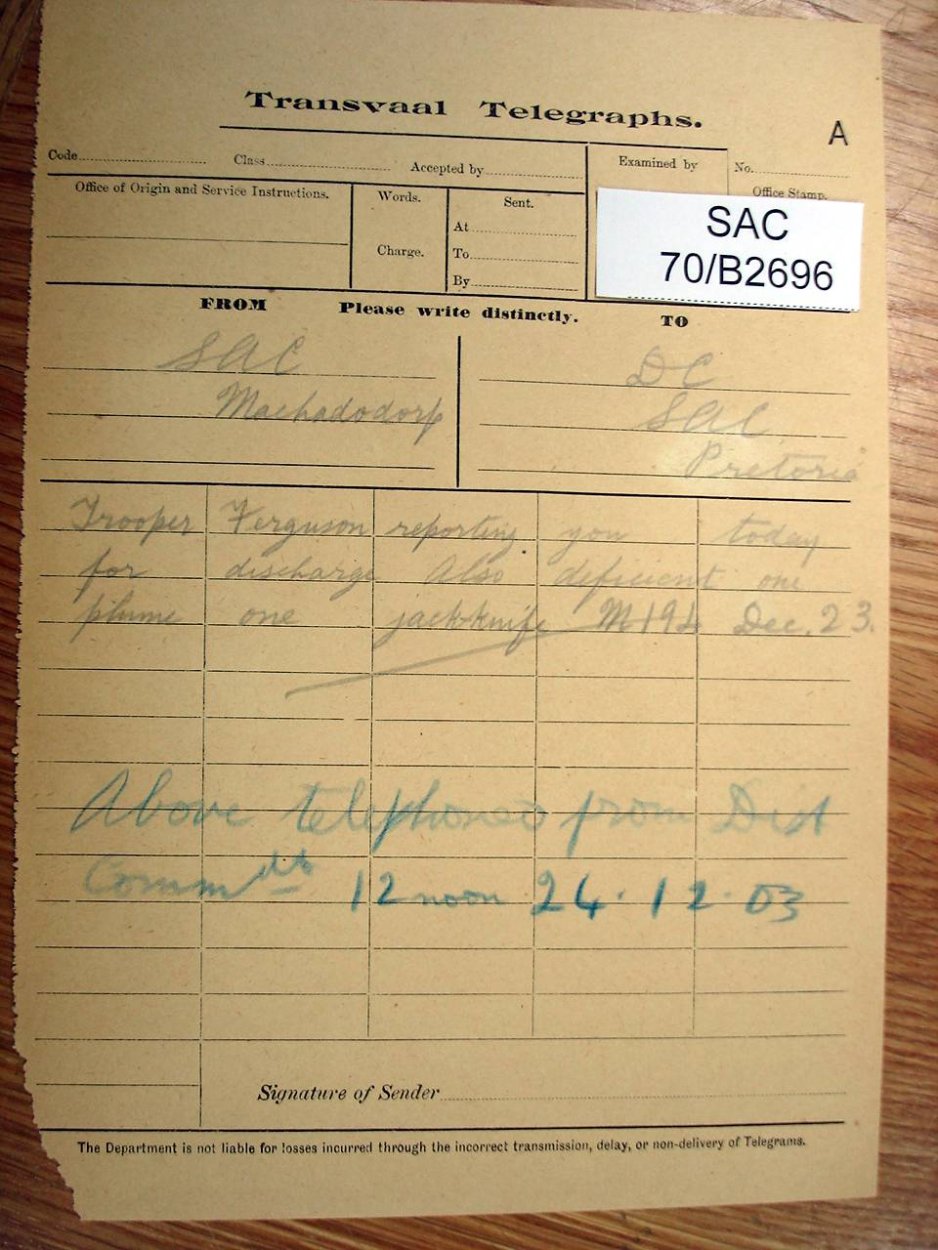 Transvaal Telegraphs.
A
Code Class Accepted by Examined by No.
Office of Origin and Service Instructions. Words. Sent. Office Stamp.
At
Charge. To
By
SAC
70/B2696
FROM Please write distinctly. TO
SAC DC
Machadodorp SAC
Pretoria
Trooper Ferguson reporting you today
for discharge Also deficient one
plume one jack-knife M192 Dec. 23.
Above telephoned from Dist
Commdt 12 noon 24.12.03
Signature of Sender
The Department is not liable for losses incurred through the incorrect transmission, delay, or non-delivery of Telegrams.